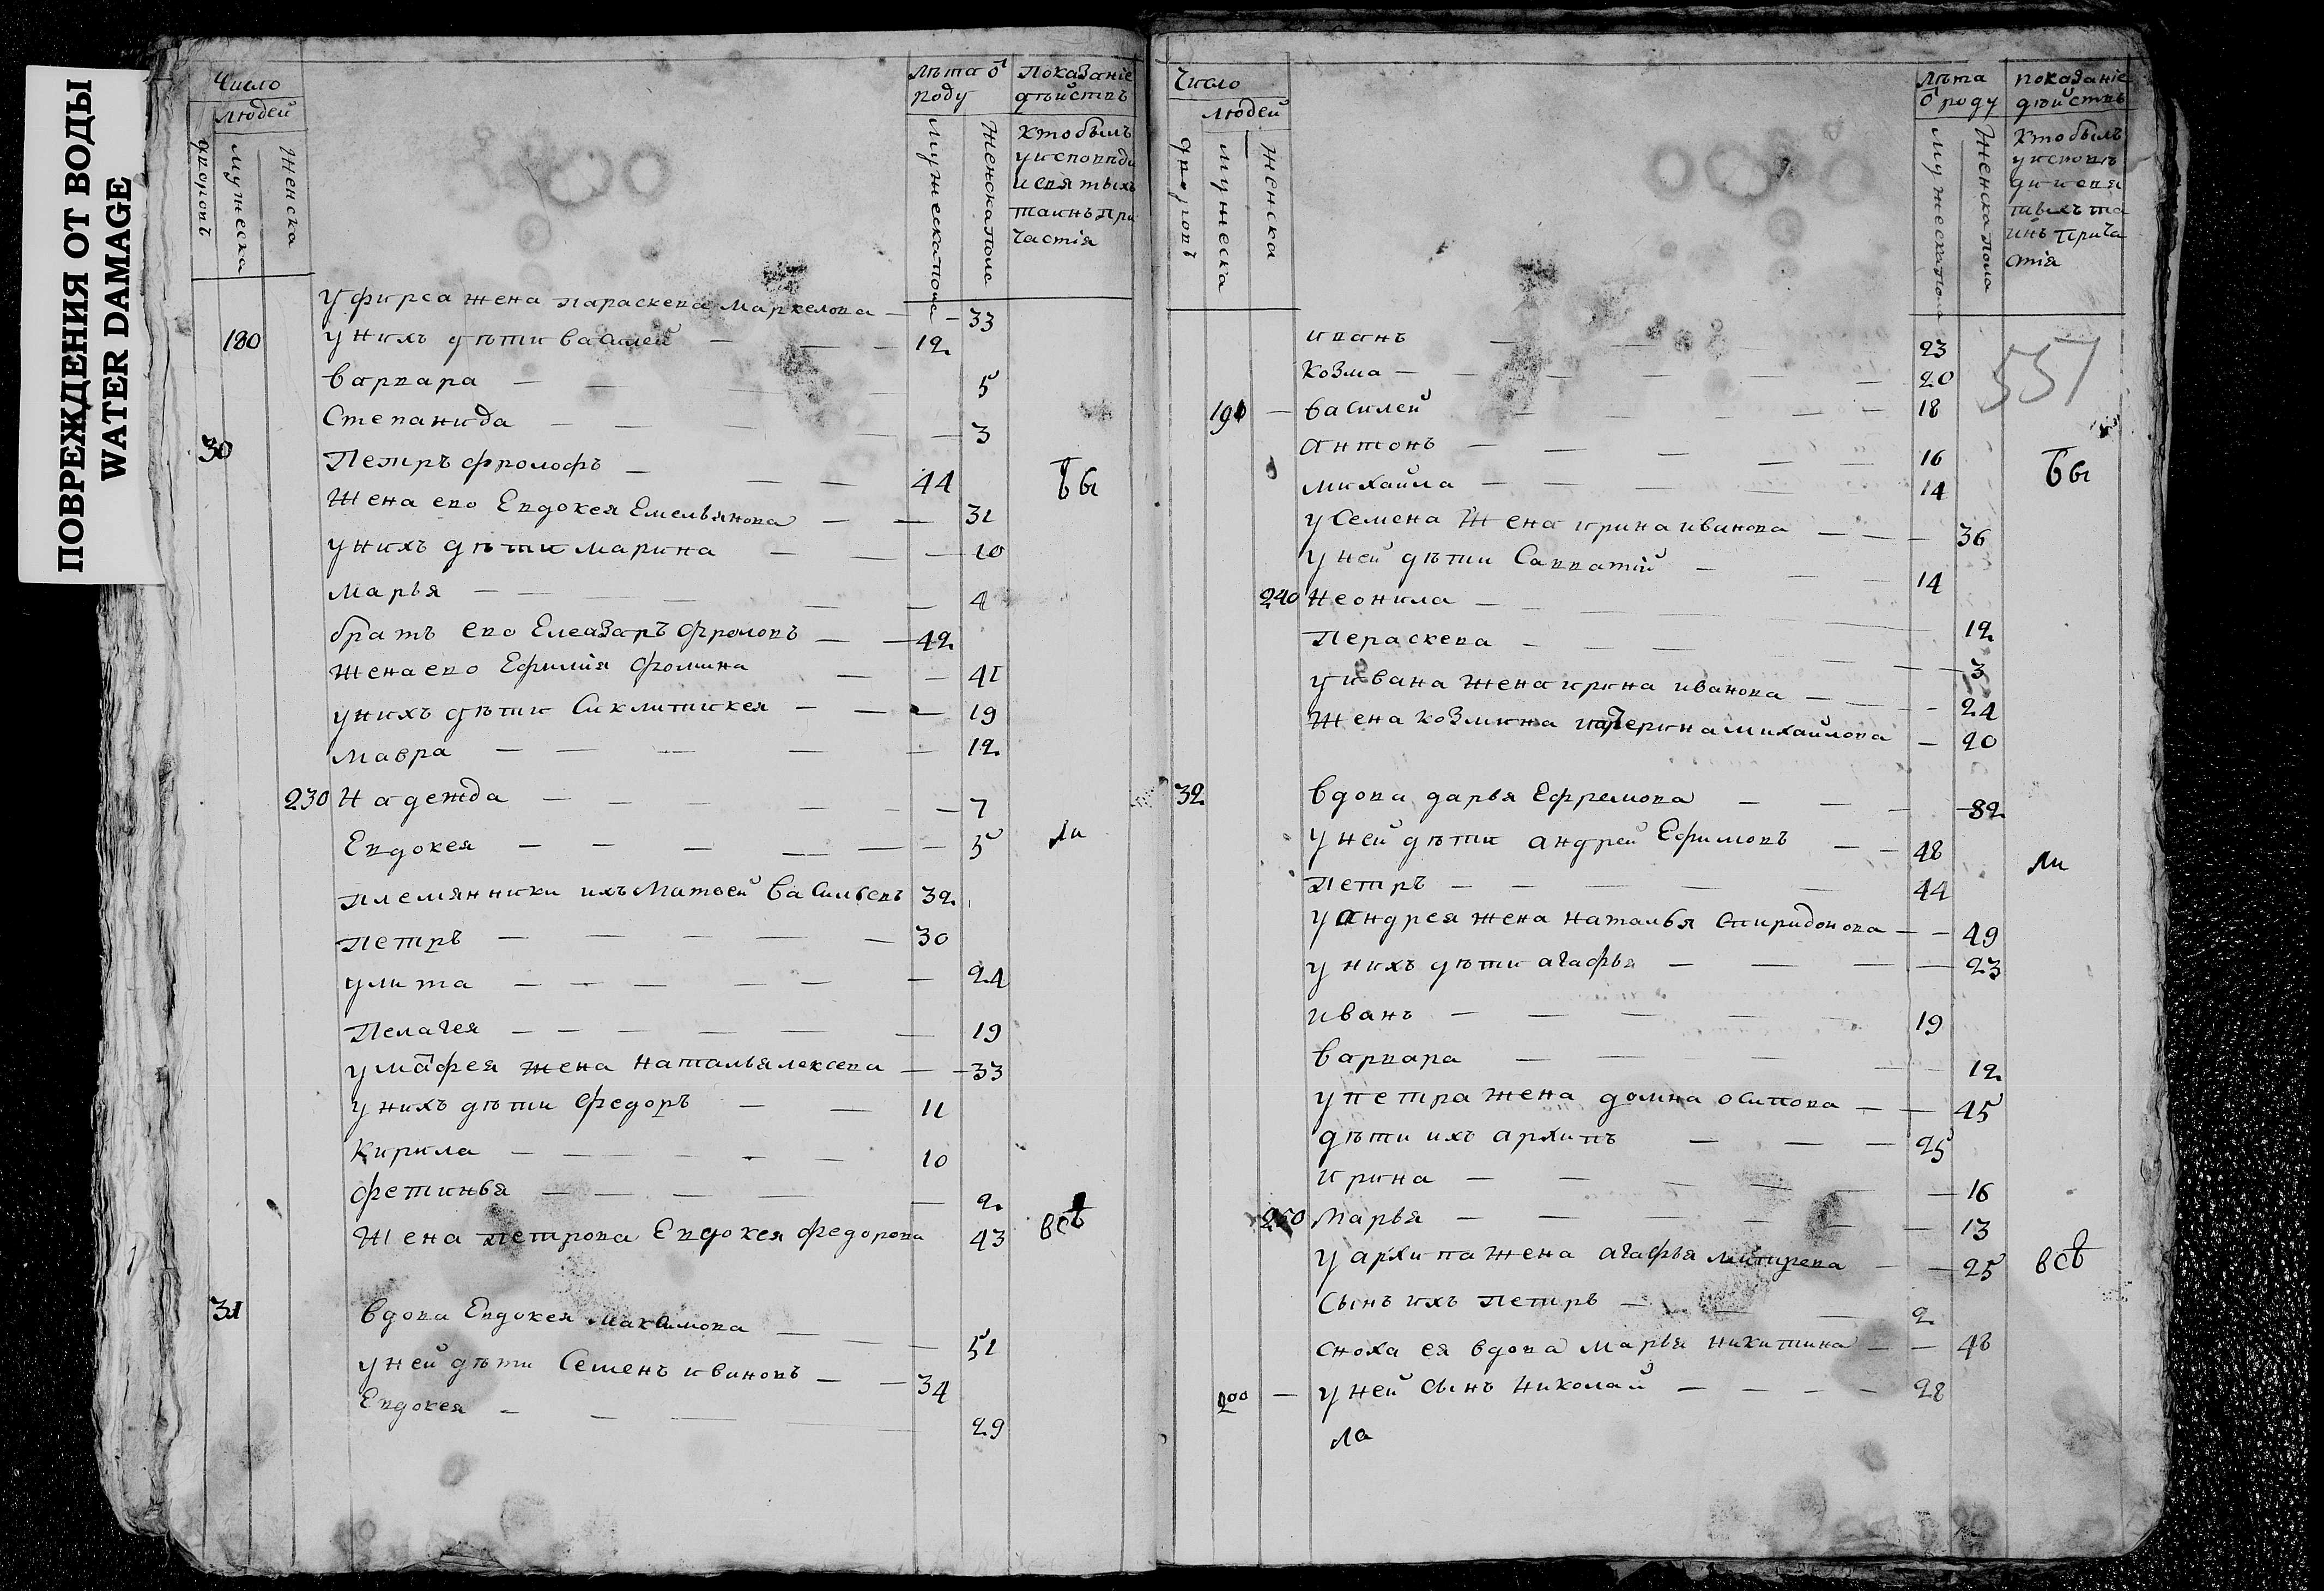 ПОВРЕЖДЕНИЯ ОТ ВОДЫ
WATER DAMAGE
Число
людей
дворовъ
мужеска
женска
лѣта ѿ
роду
мужеска пола
женска пола
показаніе
дѣйствъ
кто былъ
у исповѣди
и святыхъ
таинъ при
частія
у фирса жена параскева маркелова — 33
180 у нихъ дѣти василей — 12
варвара — 5
Степанида — 3
30 Петръ фролофъ — 44
бы
Жена ево Евдокея Емельянова — 31
у нихъ дѣти марина — 10
марья — 4
братъ ево Елеазаръ фроловъ — 42
жена ево Ефимія фомина — 41
у нихъ дѣти Сиклитикея — 19
мавра — 12
230 Надежда — 7
Евдокея — 5
ли
племянники ихъ Матвей васильевъ 32
петръ — 30
улита — 24
Пелагея — 19
у маѳея жена наталья лексеева — 33
у нихъ дѣти федоръ — 11
Кирила — 10
фетинья — 2
Жена петрова Евдокея федорова 43
всѣ
31 вдова Евдокея максимова — 51
у ней дѣти Семенъ ивановъ — 34
Евдокея — 29
Число
людей
дворовъ
мужеска
женска
лѣта
ѿ роду
мужеска пола
женска пола
показаніе
дѣйствъ
кто былъ
у исповѣ
ди и свя
тыхъ та
инъ прича
стія
551
иванъ — 23
Козма — 20
190 — василей — 18
антонъ — 16
бы
михайла — 14
у Семена жена ирина иванова — 36
у ней дѣти Савватій — 14
240 неонила — 12
Пераскева — 3
у ивана жена ирина иванова — 24
Жена козмина катерина михайлова — 20
32 вдова дарья Ефремова — 82
у ней дѣти андрей Ефимовъ — 48
ли
петръ — 44
у андрея жена наталья спиридонова — 49
у нихъ дѣти агафья — 23
иванъ — 19
варвара — 12
у петра жена домна осипова — 45
дѣти ихъ архипъ — 25
ирина — 16
250 марья — 13
у архипа жена агафья — 25
всѣ
Сынъ ихъ петръ — 2
сноха ея вдова марья никитина — 48
200 — у ней сынъ николай — 28
ла